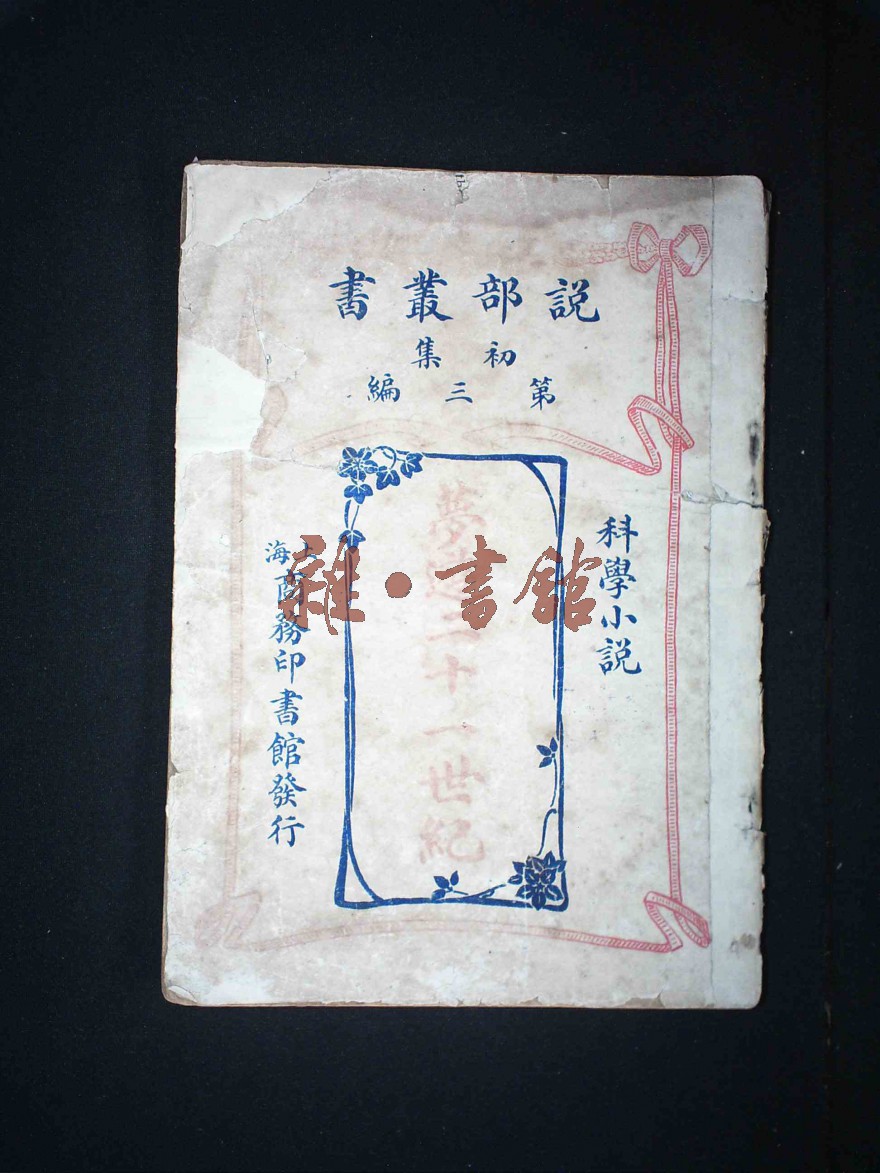 説部叢書
初集
第三編
科學小説
夢遊二十一世紀
上海商務印書館發行
雜·書館